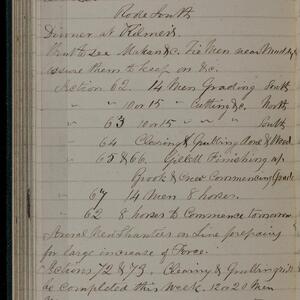 Rode South
Dinner at Kilmer's
Went to see &c. Tie Men near
assure them to keep on &c.
Section 62 14 Men Grading South
" " 10 or 15 " Cutting &c. North
" 63 10 or 15 " " South
" 64 Clearing & Grubbing done & Wood
" 65 & 66 Gillett Finishing up
Brook & new Commencing Grade
" 67 14 Men 8 horses.
" 62 8 horses to Commence tomorrow
Several New Shanties on Line preparing
for large increase of Force.
Sections 72 & 73. Clearing & Grubbing will
be Completed this Week. 12 or 20 Men